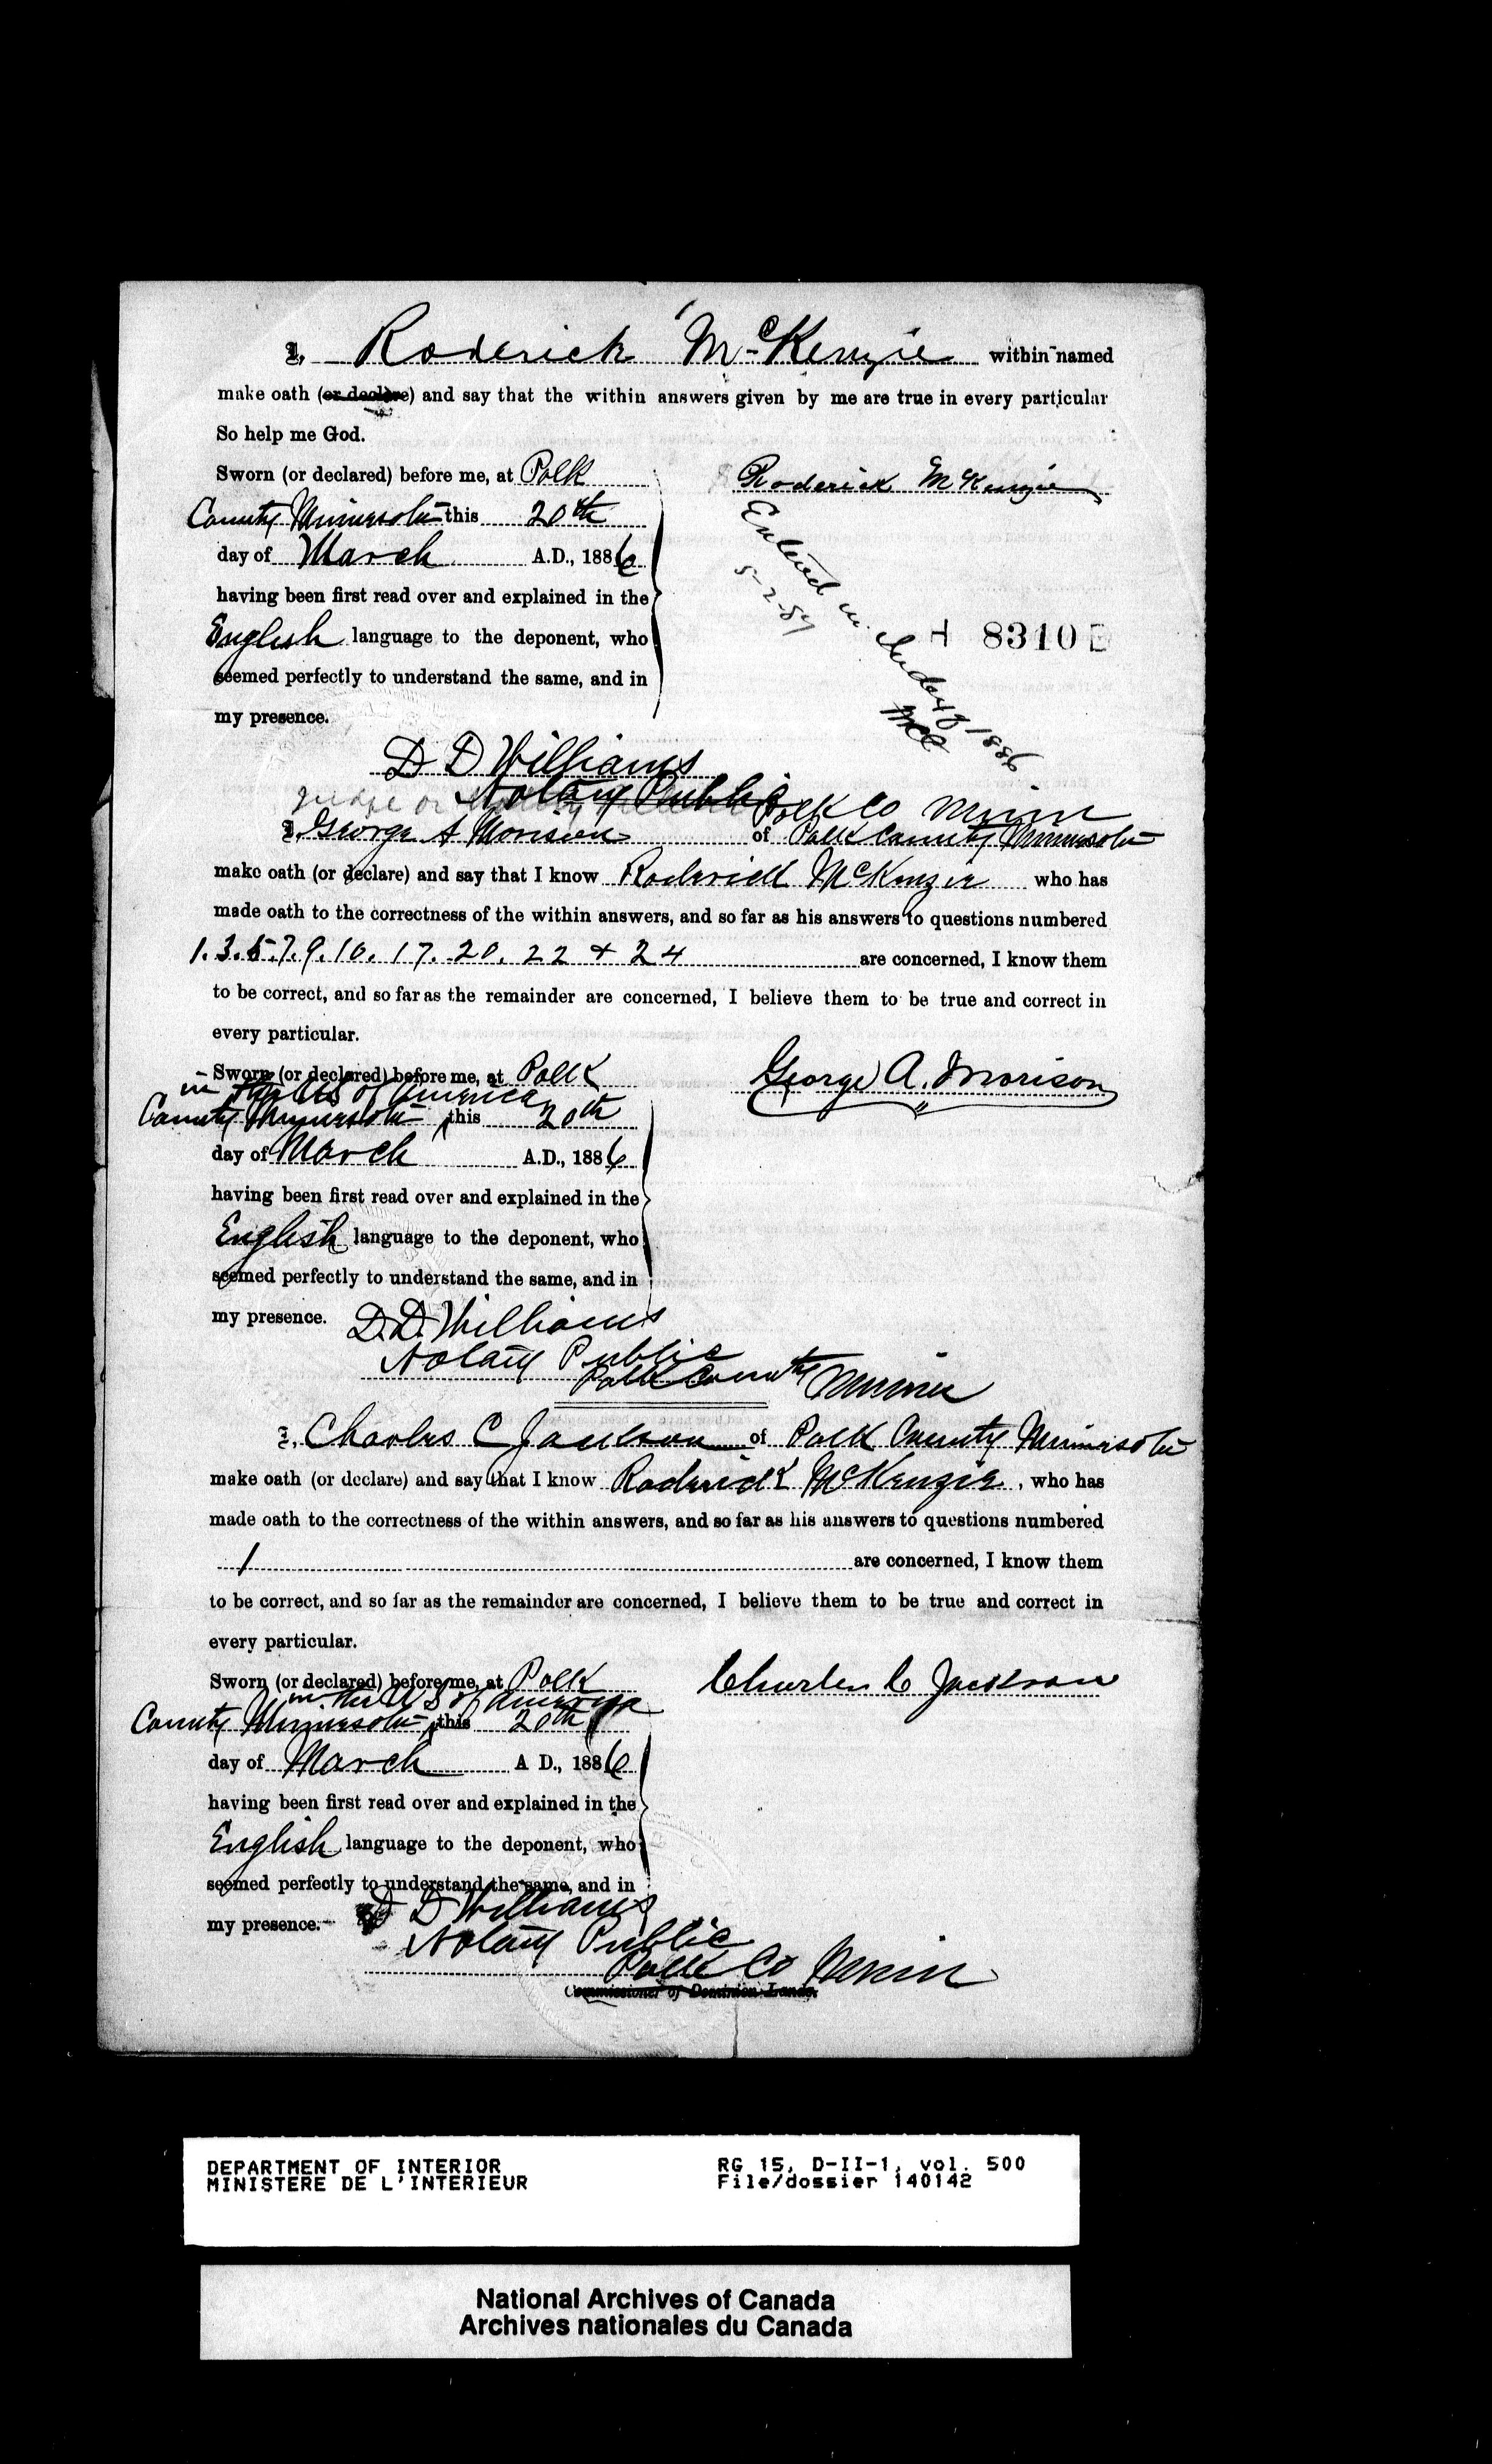 I, Roderick McKenzie within named
make oath (or declare) and say that the within answers given by me are true in every particular
So help me God.
Sworn (or declared) before me, at Polk
Roderick McKenzie
County Minnesota this 20th
day of March A.D., 1886
having been first read over and explained in the
English language to the deponent, who
seemed perfectly to understand the same, and in
my presence.
Entered in Index 48 1886
5-2-87
H 8310 E
D D Williams
Notary Public
Polk Co Minn
I, George A Morison of Polk County Minnesota
make oath (or declare) and say that I know Roderick McKenzie who has
made oath to the correctness of the within answers, and so far as his answers to questions numbered
1. 3. 5. 7. 9. 10. 17. 20. 22 + 24 are concerned, I know them
to be correct, and so far as the remainder are concerned, I believe them to be true and correct in
every particular.
Sworn (or declared) before me, at Polk
George A. Morison
in the US of America
County Minnesota this 20th
day of March A.D., 1886
having been first read over and explained in the
English language to the deponent, who
seemed perfectly to understand the same, and in
my presence. D. D. Williams
Notary Public
Polk County Minn
I, Charles C Jackson of Polk County Minnesota
make oath (or declare) and say that I know Roderick McKenzie, who has
made oath to the correctness of the within answers, and so far as his answers to questions numbered
1 are concerned, I know them
to be correct, and so far as the remainder are concerned, I believe them to be true and correct in
every particular.
Sworn (or declared) before me, at Polk
Charles C Jackson
in the US of America
County Minnesota, this 20th
day of March A D., 1886
having been first read over and explained in the
English language to the deponent, who
seemed perfectly to understand the same, and in
my presence. D D Williams
Notary Public
Polk Co Minn
Commissioner of Dominion Lands.
DEPARTMENT OF INTERIOR
MINISTERE DE L'INTERIEUR
RG 15, D-II-1, vol. 500
File/dossier 140142
National Archives of Canada
Archives nationales du Canada